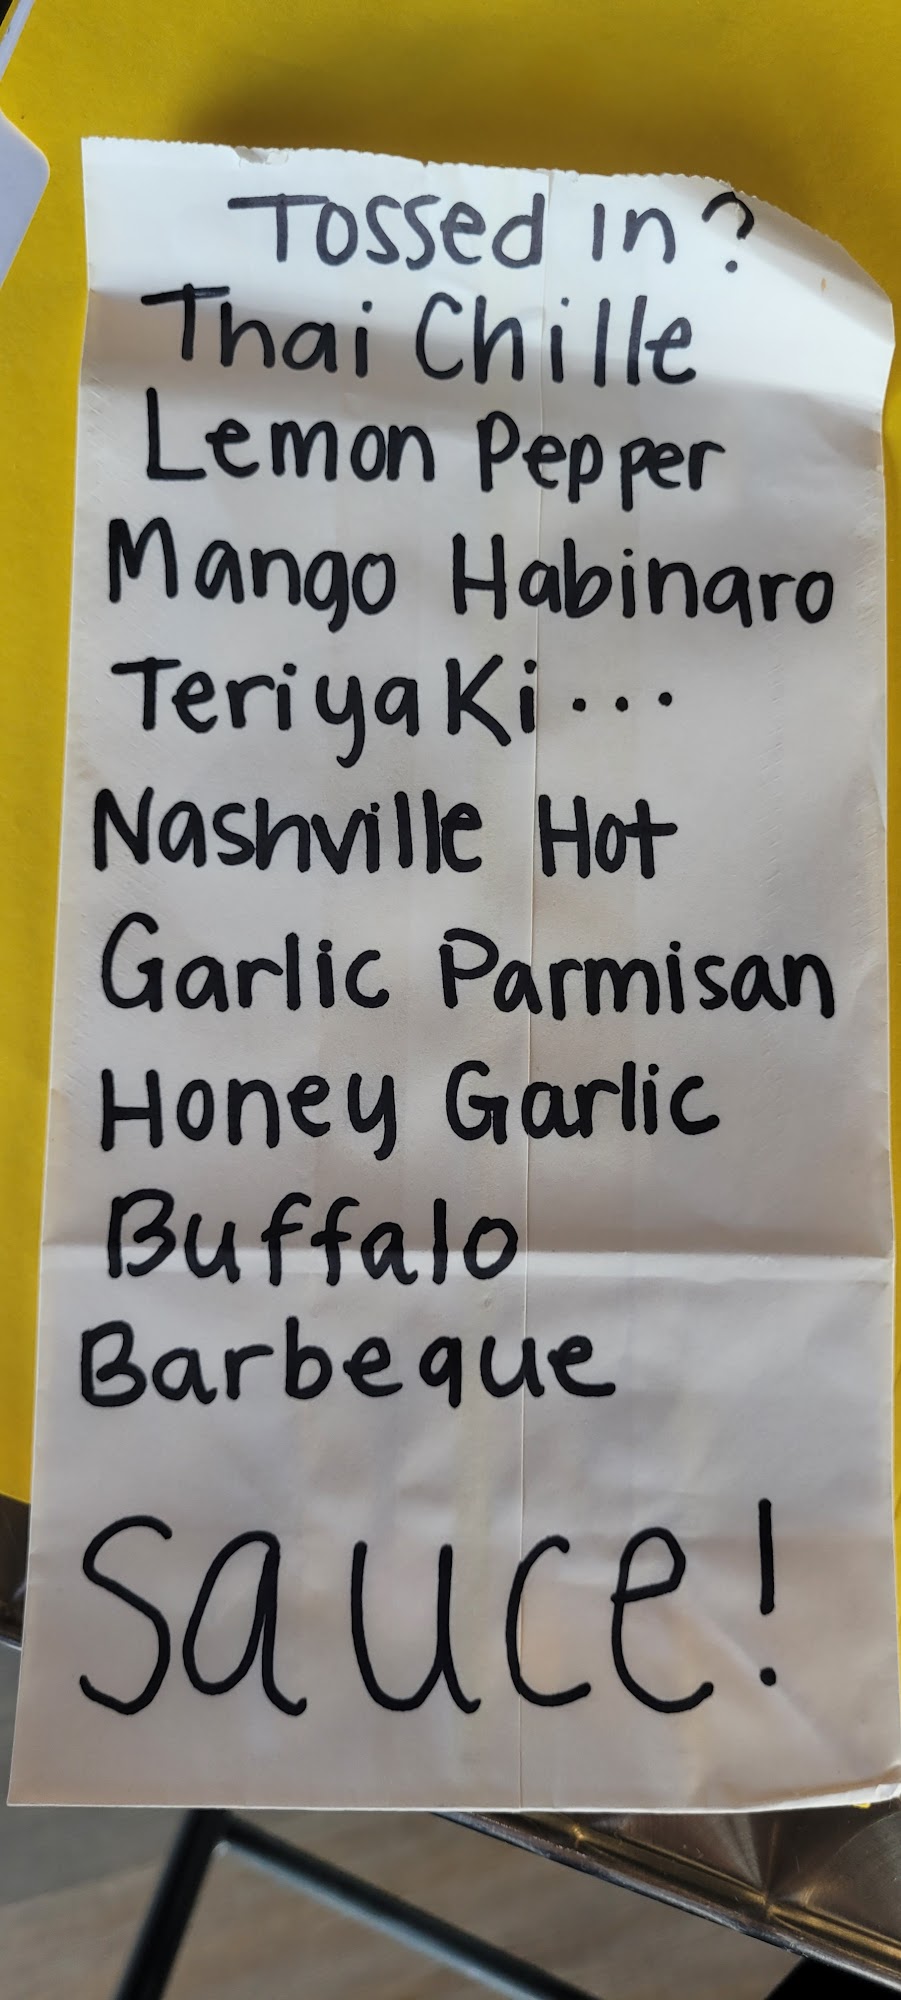 Tossed in?
Thai Chille
Lemon Pepper
Mango Habinaro
Teriyaki...
Nashville Hot
Garlic Parmisan
Honey Garlic
Buffalo
Barbeque
Sauce!